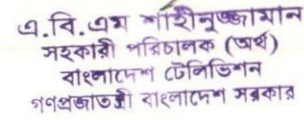 এ.বি.এম শাহীনুজ্জামান
সহকারী পরিচালক (অর্থ)
বাংলাদেশ টেলিভিশন
গণপ্রজাতন্ত্রী বাংলাদেশ সরকার